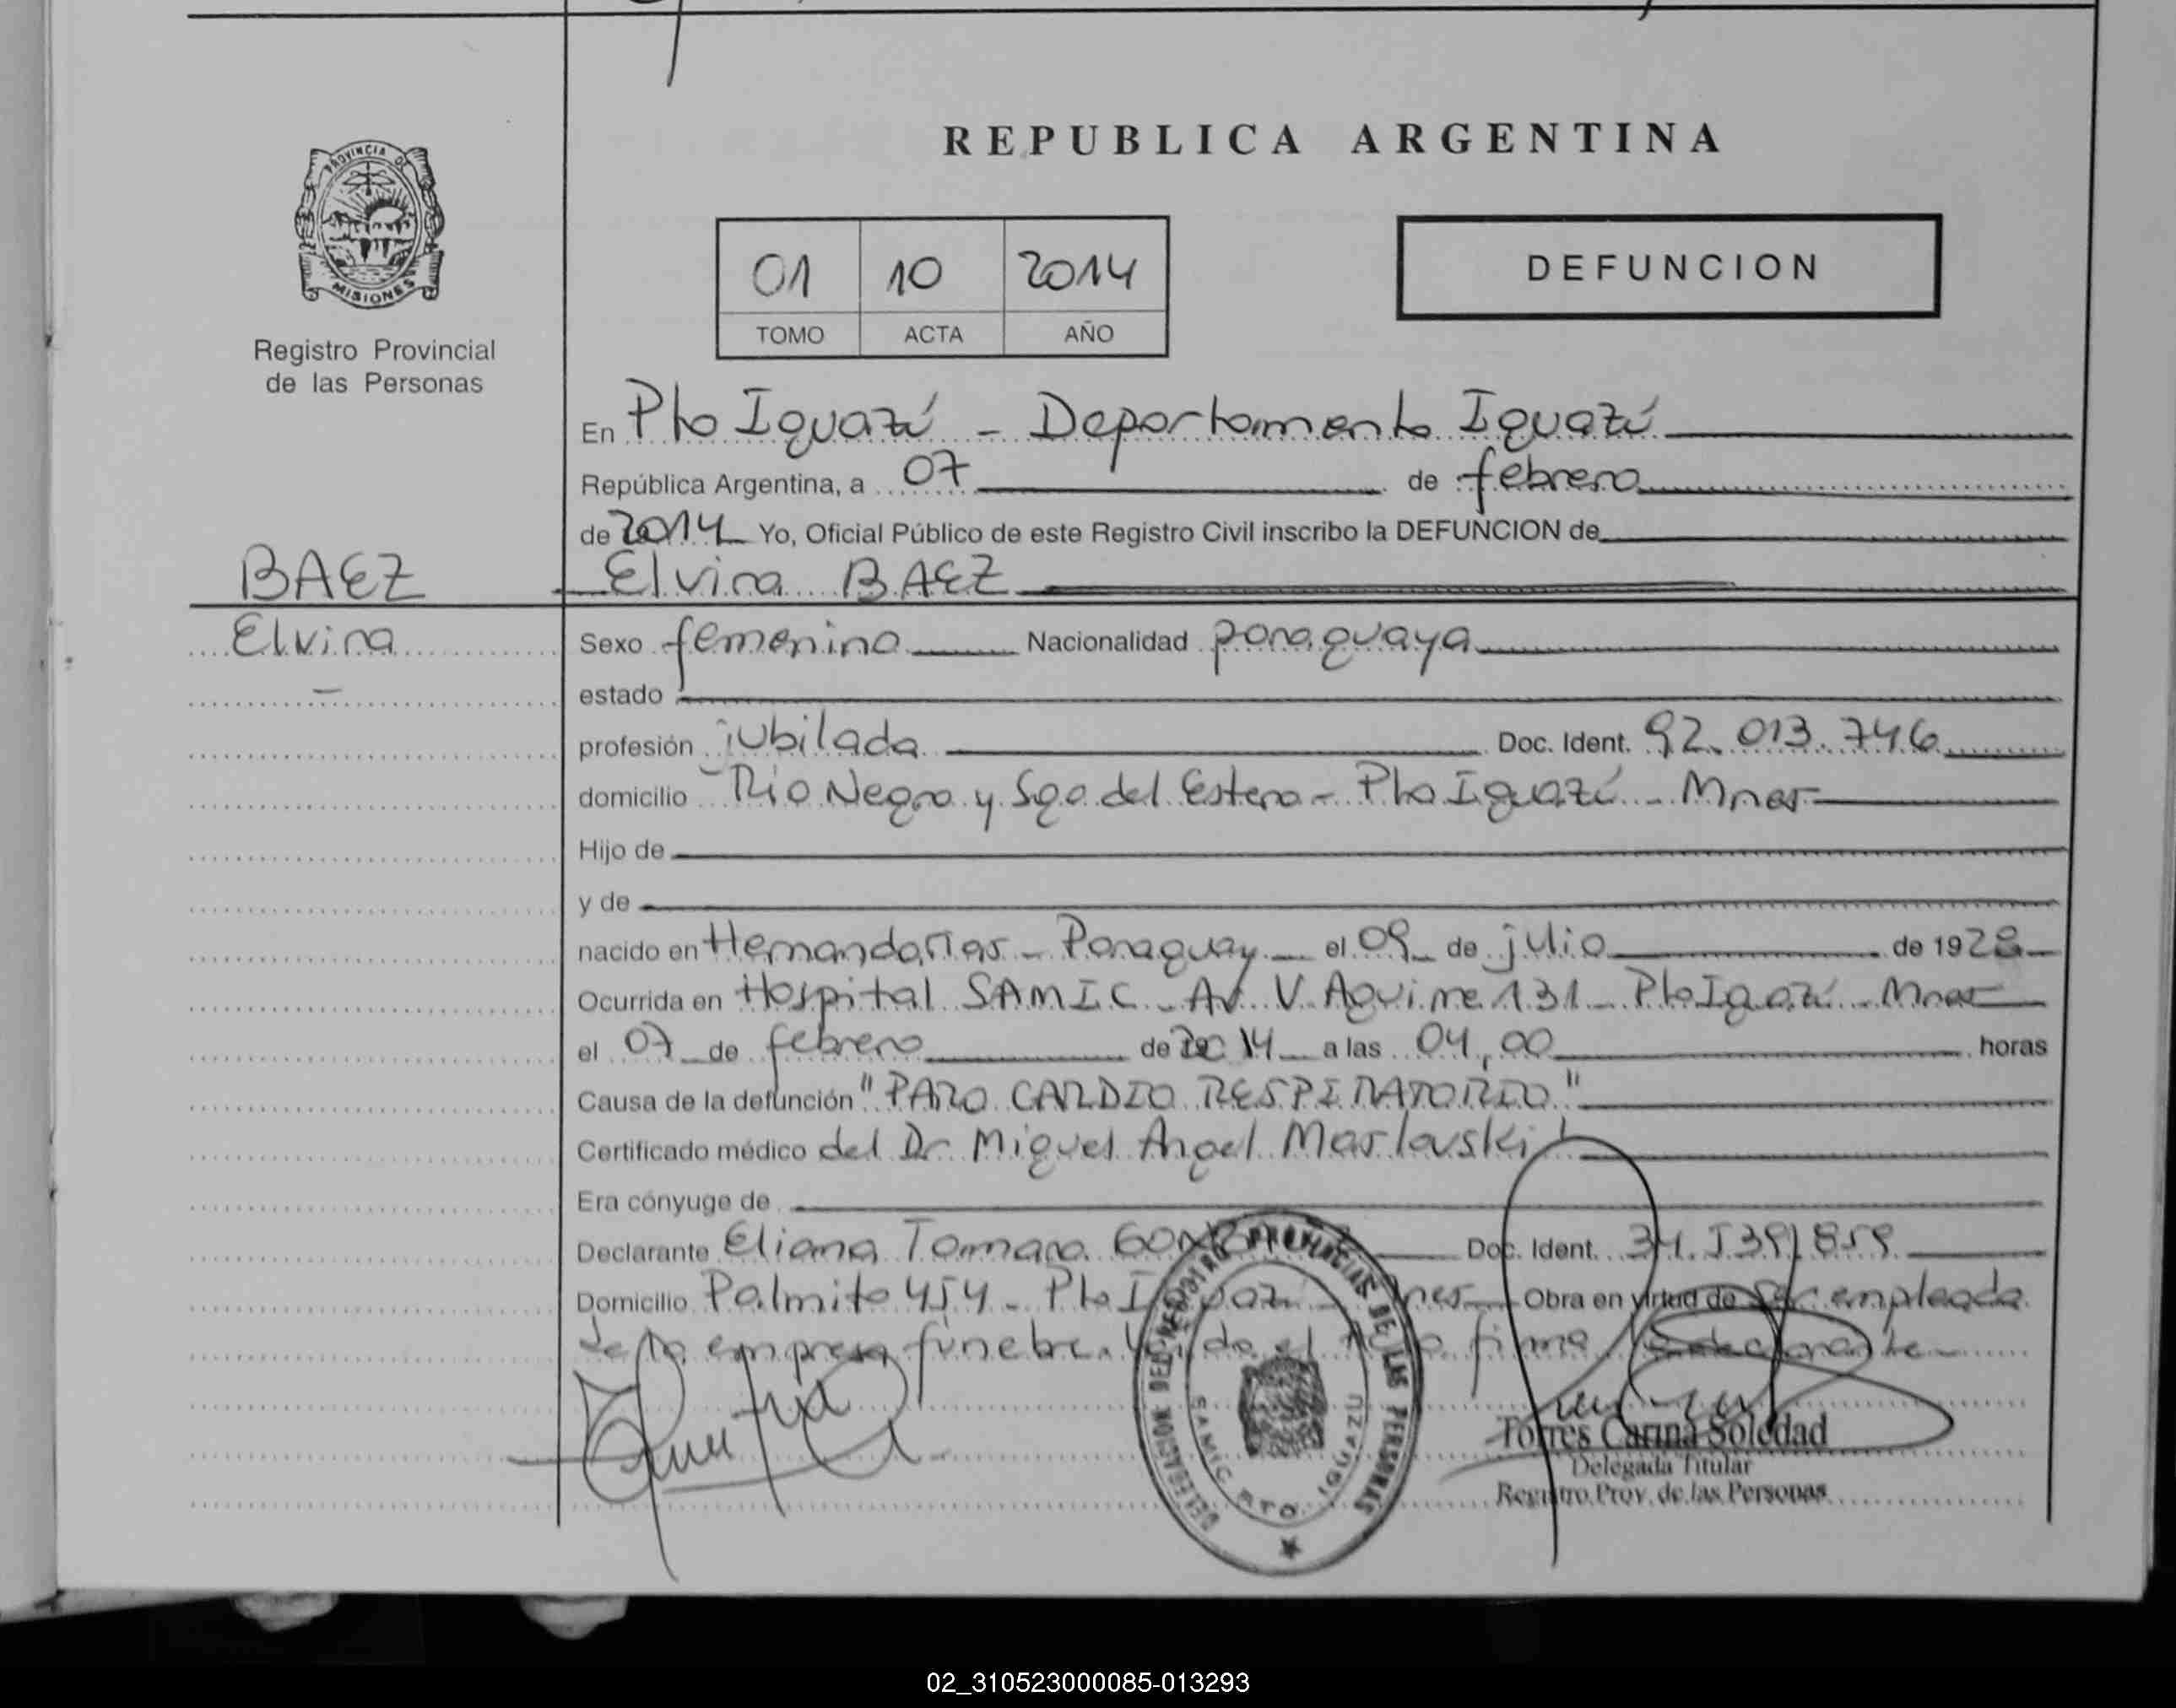 PROVINCIA DE
MISIONES
Registro Provincial
de las Personas
REPUBLICA ARGENTINA
01 10 2014
TOMO ACTA AÑO
DEFUNCION
En Pto Iguazú - Departamento Iguazú
República Argentina, a 07 de febrero
de 2014 Yo, Oficial Público de este Registro Civil inscribo la DEFUNCION de
BAEZ Elvira BAEZ
Elvira Sexo femenino Nacionalidad paraguaya
estado
profesión jubilada Doc. Ident. 92.013.746
domicilio Rio Negro y Sgo del Estero - Pto Iguazú - Mnes
Hijo de
y de
nacido en Hernandarias - Paraguay el 09 de julio de 1928
Ocurrida en Hospital SAMIC - Av V. Aguirre 131 - Pto Iguazú - Mnes
el 07 de febrero de 2014 a las 04,00 horas
Causa de la defunción "PARO CARDIO RESPIRATORIO"
Certificado médico del Dr Miguel Angel Maslowski
Era cónyuge de
Declarante Eliana Tamara Doc. Ident. 34.539.859
Domicilio Palmito 454 - Pto Mnes Obra en virtud de ser empleada
de la empresa fúnebre. el firma declarante
DELEGACION DEL REGISTRO PROVINCIAL DE LAS PERSONAS
SAMIC PTO. IGUAZU
Torres Carina Soledad
Delegada Titular
Registro Prov. de las Personas
02_310523000085-013293